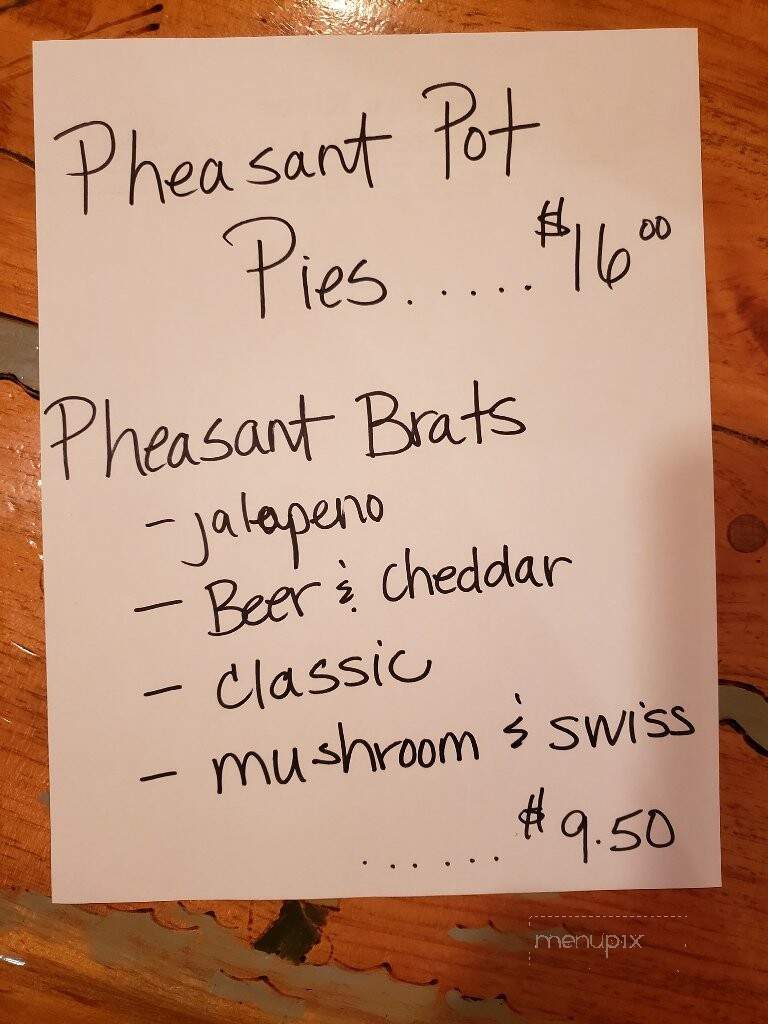 Pheasant Pot
Pies.....$16⁰⁰
Pheasant Brats
- jalapeno
- Beer & cheddar
- classic
- mushroom & swiss
......$9.50
menupix